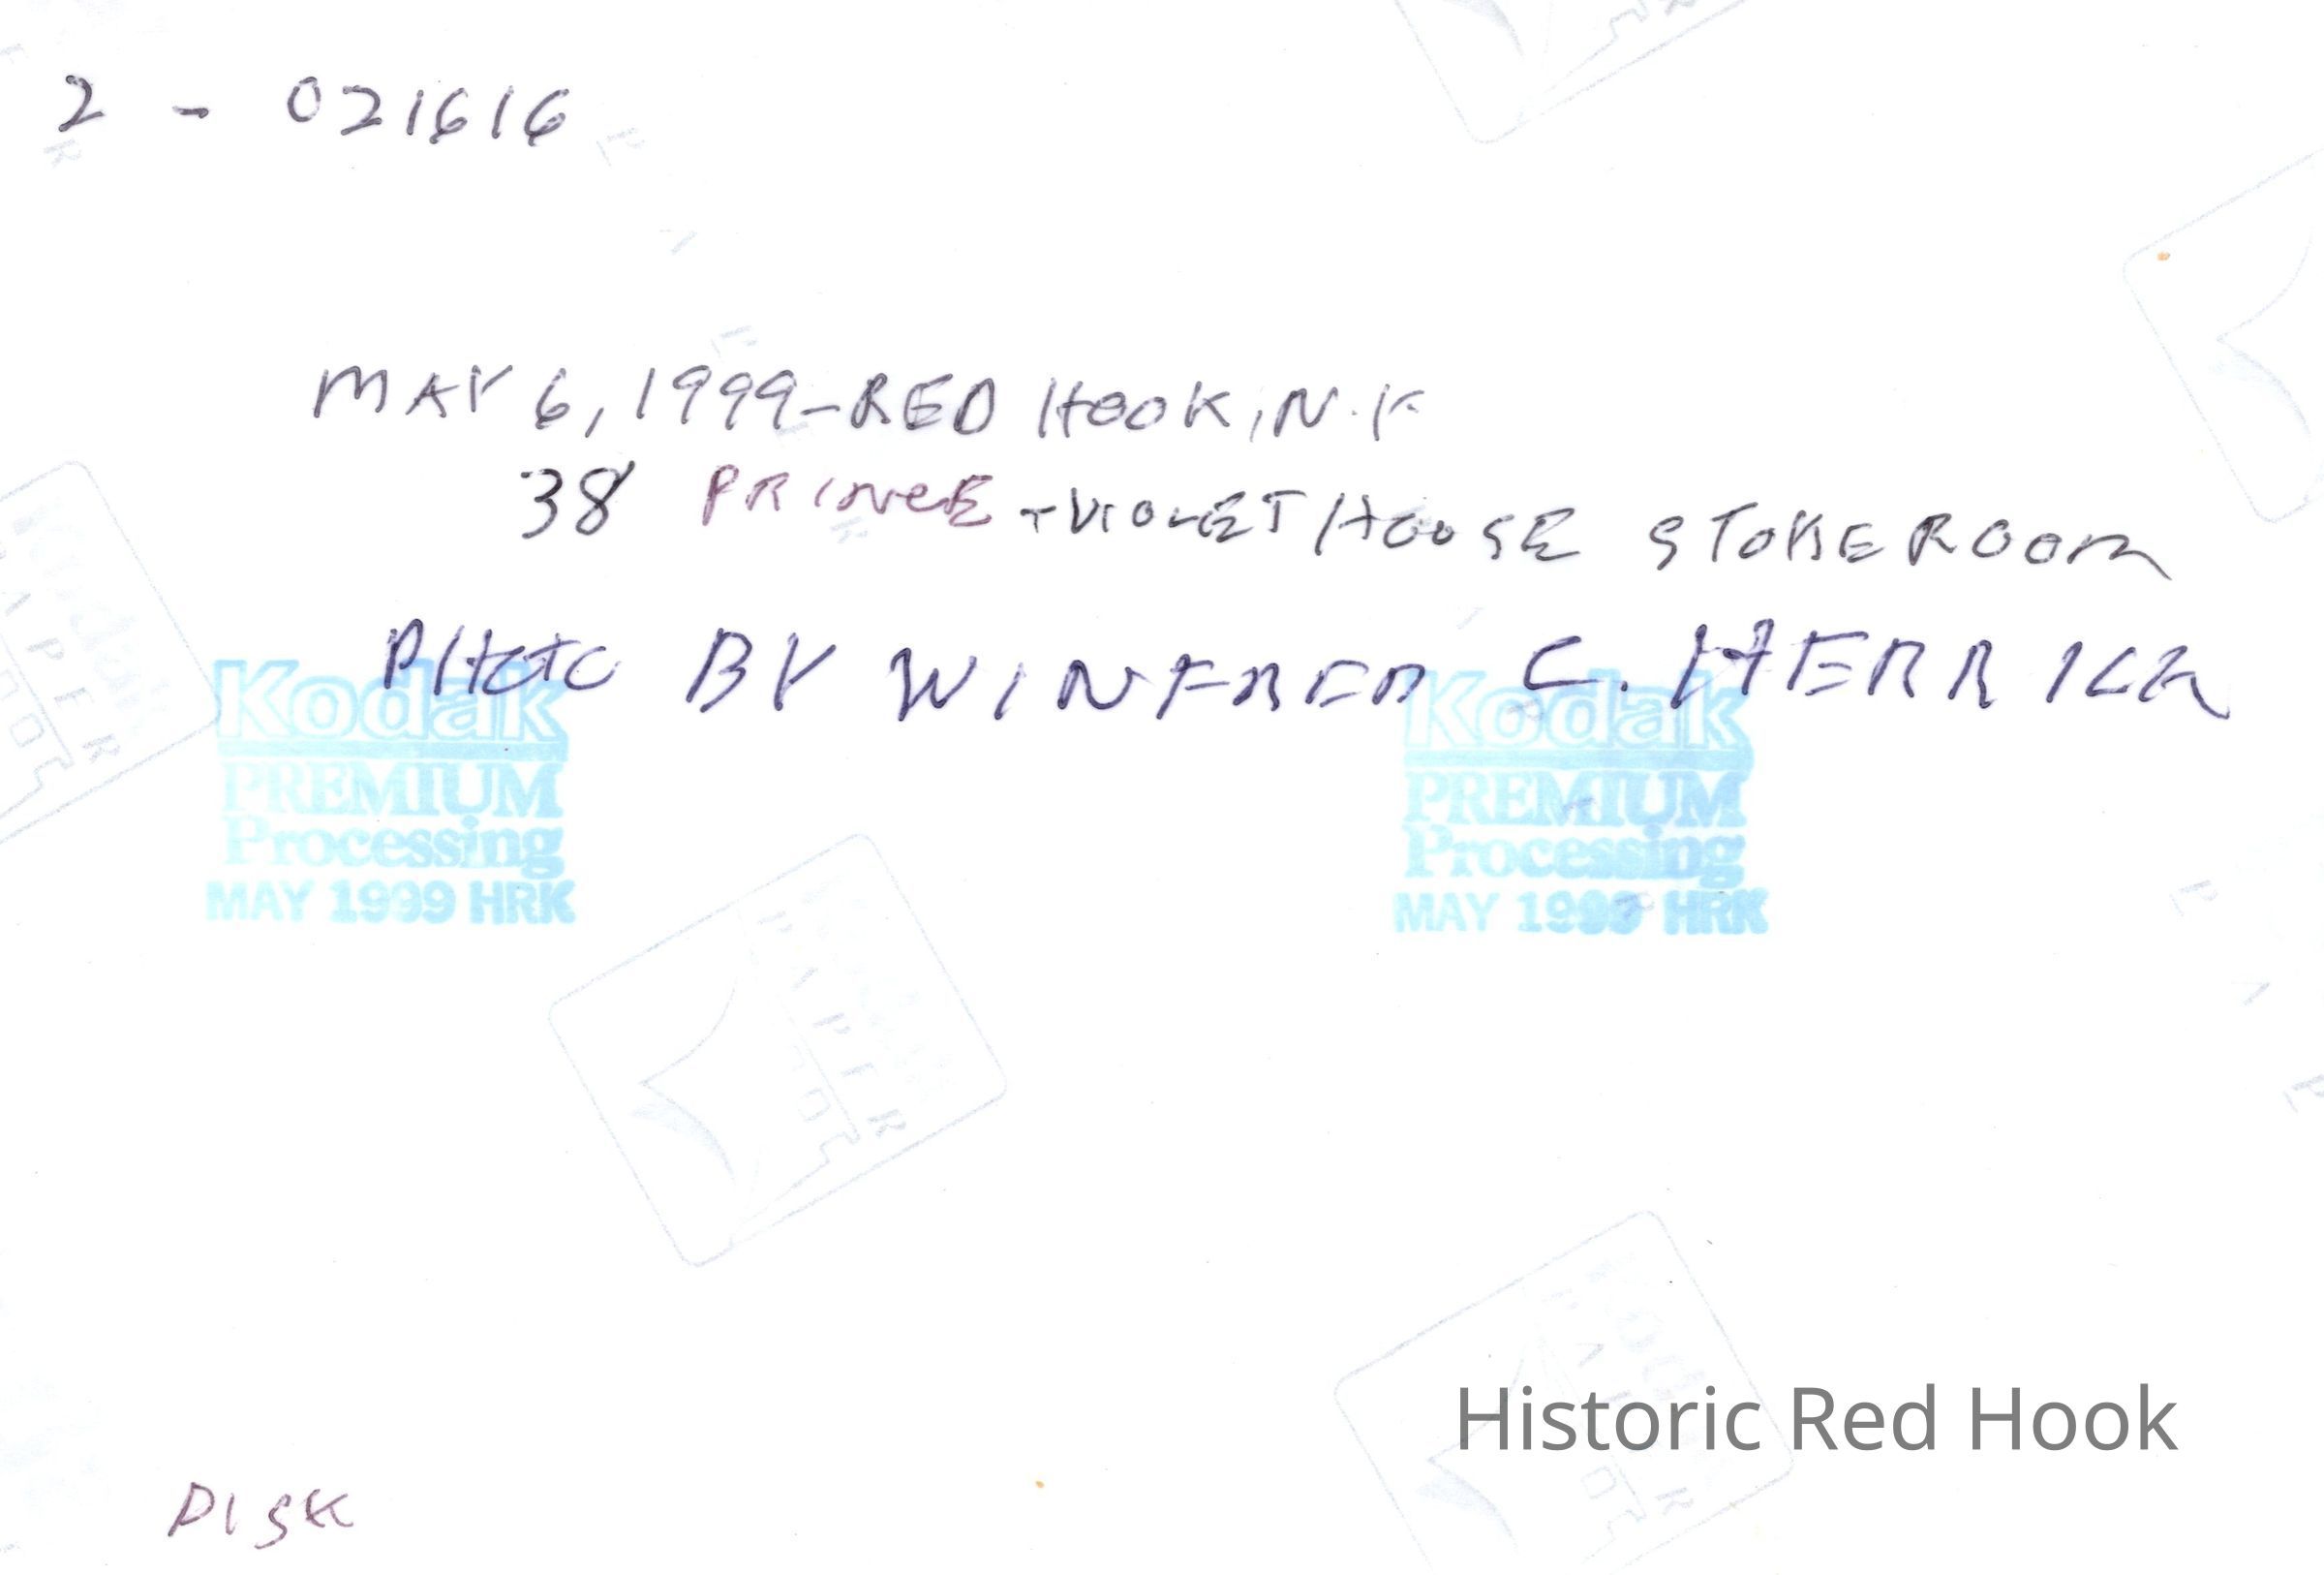 2 - 021616
MAY 6, 1999-RED HOOK, N.Y
38 PRINCE - VIOLET HOUSE STOKEROOM
PHOTO BY WINFRED C. HERRICK
Kodak
PREMIUM
Processing
MAY 1999 HRK
Kodak
PREMIUM
Processing
MAY 1999 HRK
Historic Red Hook
DISK